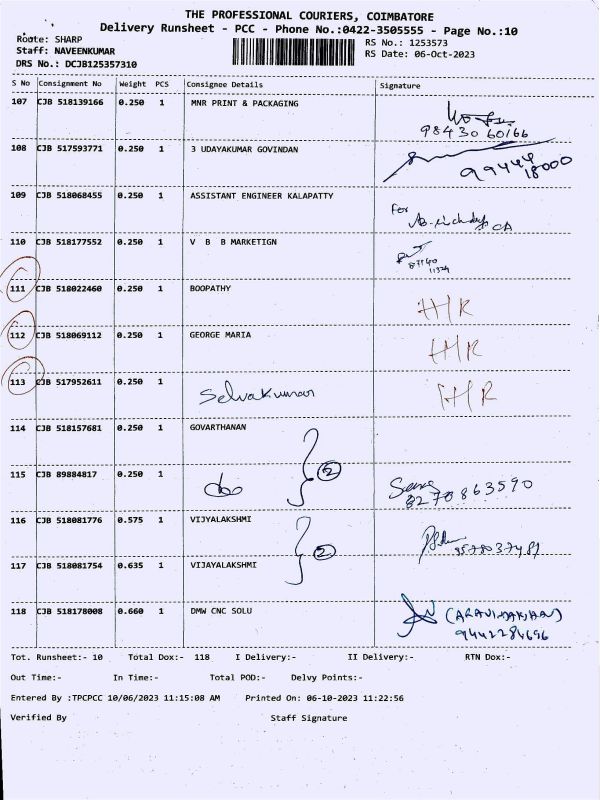 THE PROFESSIONAL COURIERS, COIMBATORE
Delivery Runsheet - PCC - Phone No.:0422-3505555 - Page No.:10
Route: SHARP
RS No.: 1253573
Staff: NAVEENKUMAR
RS Date: 06-Oct-2023
DRS No.: DCJB125357310
S No Consignment No Weight PCS Consignee Details Signature
107 CJB 518139166 0.250 1 MNR PRINT & PACKAGING
98430 60166
108 CJB 517593771 0.250 1 3 UDAYAKUMAR GOVINDAN
99444
18000
109 CJB 518068455 0.250 1 ASSISTANT ENGINEER KALAPATTY
For
CA
110 CJB 518177552 0.250 1 V B B MARKETIGN
111 CJB 518022460 0.250 1 BOOPATHY
HR
112 CJB 518069112 0.250 1 GEORGE MARIA
HR
113 CJB 517952611 0.250 1 Selvakumar HR
114 CJB 518157681 0.250 1 GOVARTHANAN
2
115 CJB 89884817 0.250 1 do
8270863590
116 CJB 518081776 0.575 1 VIJYALAKSHMI
2
117 CJB 518081754 0.635 1 VIJYALAKSHMI
118 CJB 518178008 0.660 1 DMW CNC SOLU
9442284696
Tot. Runsheet:- 10 Total Dox:- 118 I Delivery:- II Delivery:- RTN Dox:-
Out Time:- In Time:- Total POD:- Delvy Points:-
Entered By :TPCPCC 10/06/2023 11:15:08 AM Printed On: 06-10-2023 11:22:56
Verified By Staff Signature